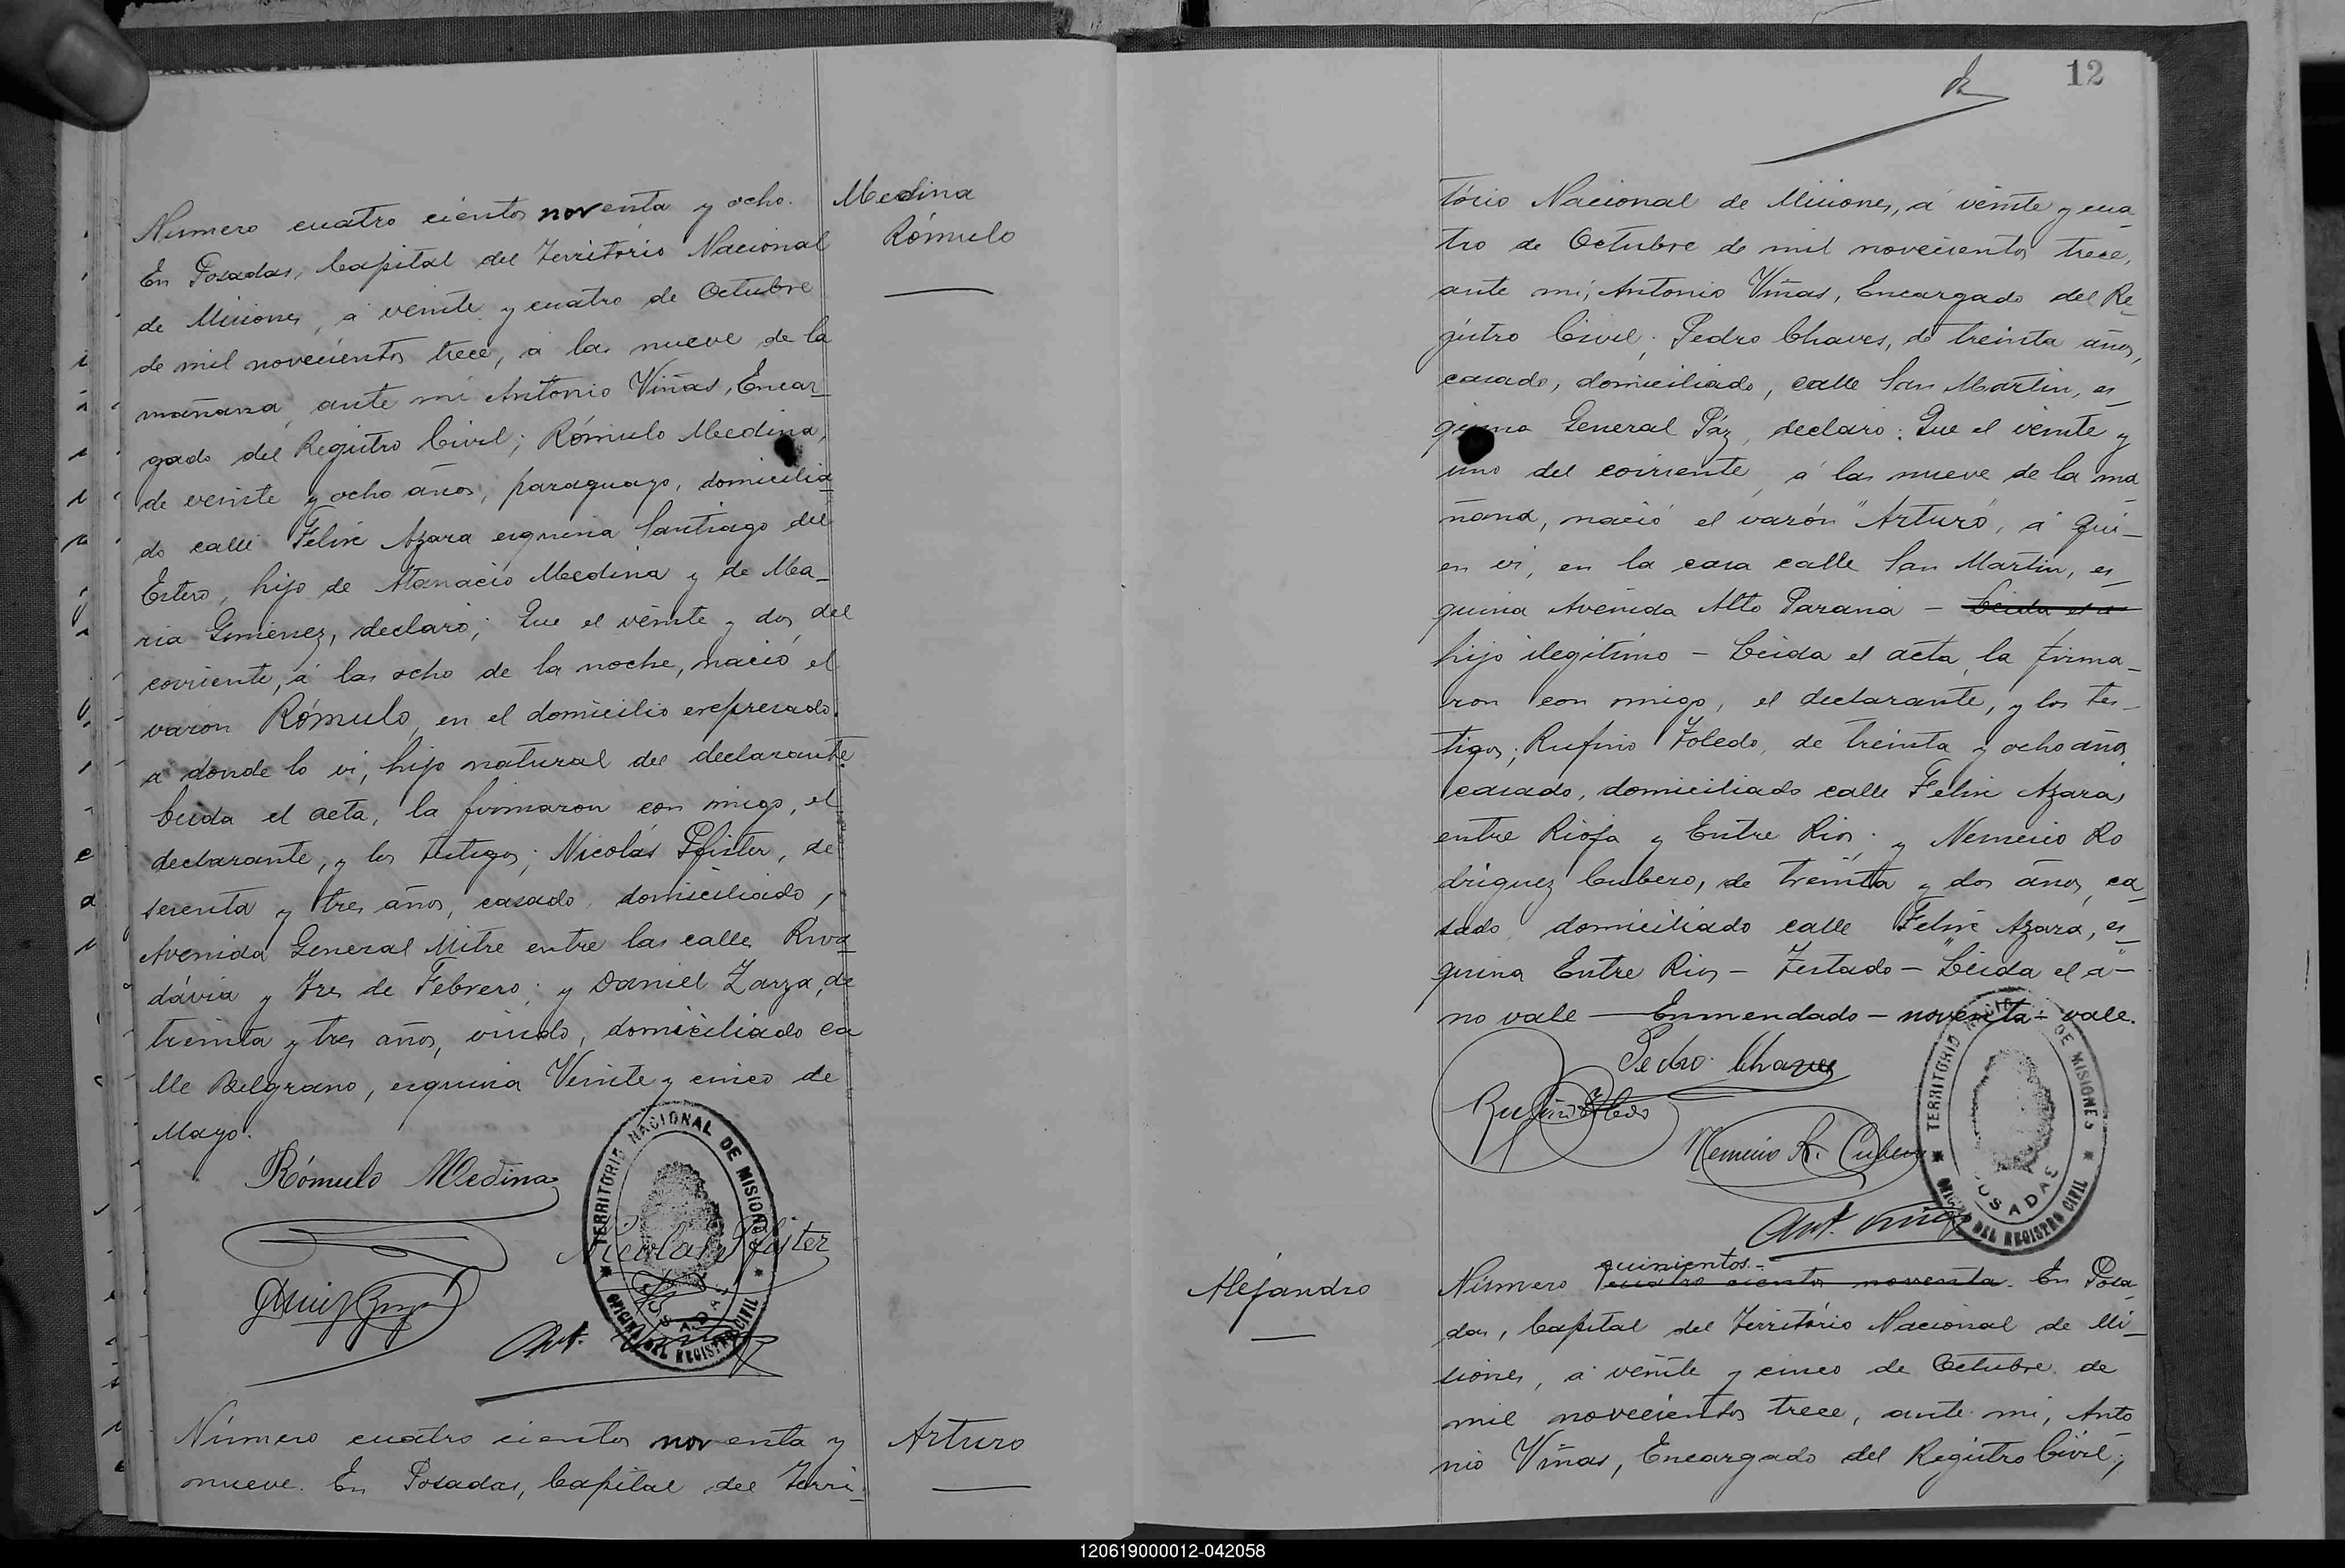 Medina
Rómulo
Número cuatro cientos noventa y ocho.
En Posadas, Capital del Território Nacional
de Misiones, á veinte y cuatro de Octubre
de mil novecientos trece, á las nueve de la
mañana, ante mi Antonio Viñas, Encar_
gado del Registro Civil; Rómulo Medina,
de veinte y ocho años, paraguayo, domicilia_
do calle Felix Azara esquina Santiago del
Estero, hijo de Atanacio Medina y de Ma_
ria Gimenez, declaró; Que el veinte y dos del
corriente, á las ocho de la noche, nació el
varon Rómulo, en el domicilio expresado.
a donde lo vi, hijo natural del declarante.
Leida el acta, la firmaron con migo, el
declarante, y los testigos; Nicolás Pfister, de
sesenta y tres años, casado, domiciliado,
Avenida General Mitre entre las calles Riva_
dávia y Tres de Febrero; y Daniel Zarza, de
treinta y tres años, viudo, domiciliado ca
lle Belgrano, esquina Veinte y cinco de
Mayo.
Rómulo Medina
Nicolas Pfister
Ant. Viñas
TERRITORIO NACIONAL DE MISIONES
POSADAS
OFICINA DEL REGISTRO CIVIL
Arturo
Número cuatro cientos noventa y
nueve. En Posadas, Capital del Terri_
12
tório Nacional de Misiones, á veinte y cua
tro de Octubre de mil novecientos trece,
ante mi, Antonio Viñas, Encargado del Re_
gistro Civil; Pedro Chaves, de treinta años,
casado, domiciliado, calle San Martin, es_
quina General Páz, declaró: Que el veinte y
uno del corriente, á las nueve de la ma_
ñana, nació el varón "Arturo", á qui_
en vi, en la casa calle San Martin, es_
quina Avenida Alto Paraná - Leida el a
hijo ilegitimo - Leida el acta, la firma_
ron con migo, el declarante, y los tes_
tigos; Rufino Toledo, de treinta y ocho años,
casado, domiciliado calle Felix Azara,
entre Rioja y Entre Rios; y Nemecio Ro
driguez Cubero, de treinta y dos años, ca_
sado, domiciliado calle Felix Azara, es_
quina Entre Rios - Testado - "Leida el a" -
no vale - Enmendado - noventa - vale.
Pedro Chaves
Rufino Toledo
Nemecio R. Cubero
Ant. Viñas
TERRITORIO NACIONAL DE MISIONES
POSADAS
OFICINA DEL REGISTRO CIVIL
Alejandro
quinientos.-
Número cuatro cientos noventa. En Posa_
das, Capital del Território Nacional de Mi_
siones, á veinte y cinco de Octubre de
mil novecientos trece, ante mi, Anto
nio Viñas, Encargado del Registro Civil;
120619000012-042058